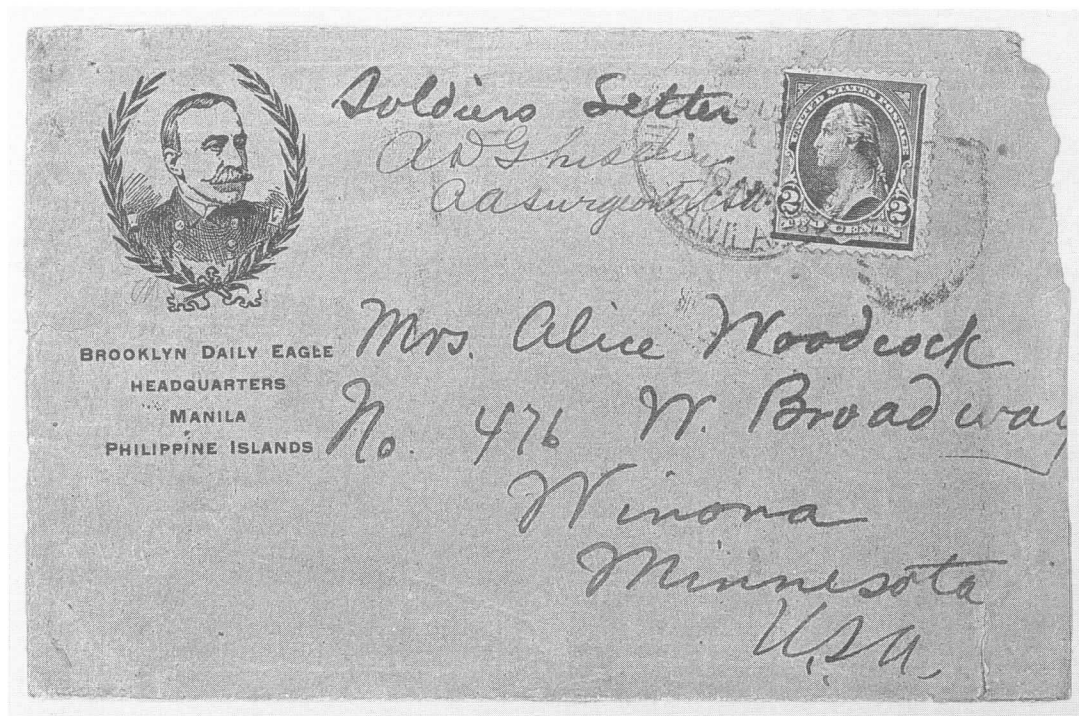 Soldiers Letter
A D
A A Surgeon USA
MANILA
UNITED STATES POSTAGE
2 2
TWO CENTS
BROOKLYN DAILY EAGLE
HEADQUARTERS
MANILA
PHILIPPINE ISLANDS
Mrs. Alice Woodcock
No. 476 W. Broadway
Winona
Minnesota
U.S.A.